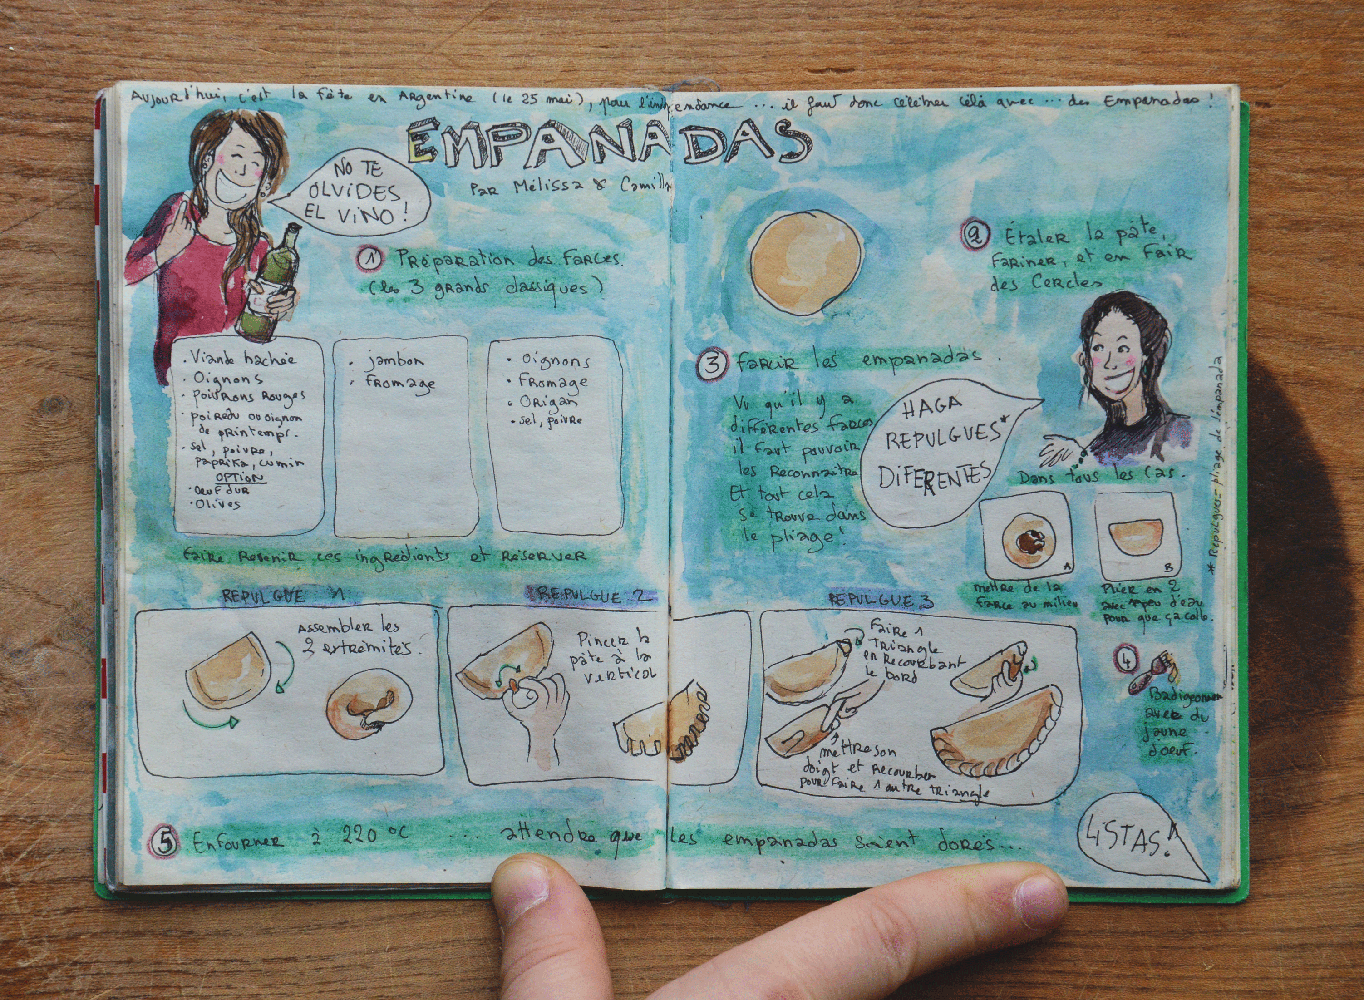 Aujourd'hui, c'est la fête en Argentine (le 25 mai), pour l'indépendance ... il faut donc célébrer cela avec ... des Empanadas !
EMPANADAS
PAR Mélissa & Camilla
NO TE
OLVIDES
EL VINO !
1 Préparation des farces.
(les 3 grands classiques)
• Viande hachée
• Oignons
• poivrons rouges
• poireau ou oignon
de printemps.
• sel, poivre,
paprika, cumin
OPTION
• oeuf dur
• Olives
• jambon
• fromage
• Oignons
• fromage
• Origan
• sel, poivre
Faire revenir ces ingrédients et réserver
2 Étaler la pâte,
fariner, et en fair
des cercles
3 farcir les empanadas.
Vu qu'il y a
différentes farces
il faut pouvoir
les reconnaître
Et tout cela
se trouve dans
le pliage !
HAGA
REPULGUES*
DIFERENTES
Dans tous les cas.
A
mettre de la
farce au milieu
B
Plier en 2
avec 1 peu d'eau
pour que ça colle.
* Repulgues = pliage de l'empanada
REPULGUE 1
Assembler les
2 extrémités.
REPULGUE 2
Pincer la
pâte à la
vertical
REPULGUE 3
Faire 1
triangle
en recourbant
le bord
mettre son
doigt et recourber
pour faire 1 autre triangle
4
Badigeonner
avec du
jaune
d'oeuf.
5 Enfourner à 220 °C ... attendre que les empanadas soient dorés...
LISTAS!